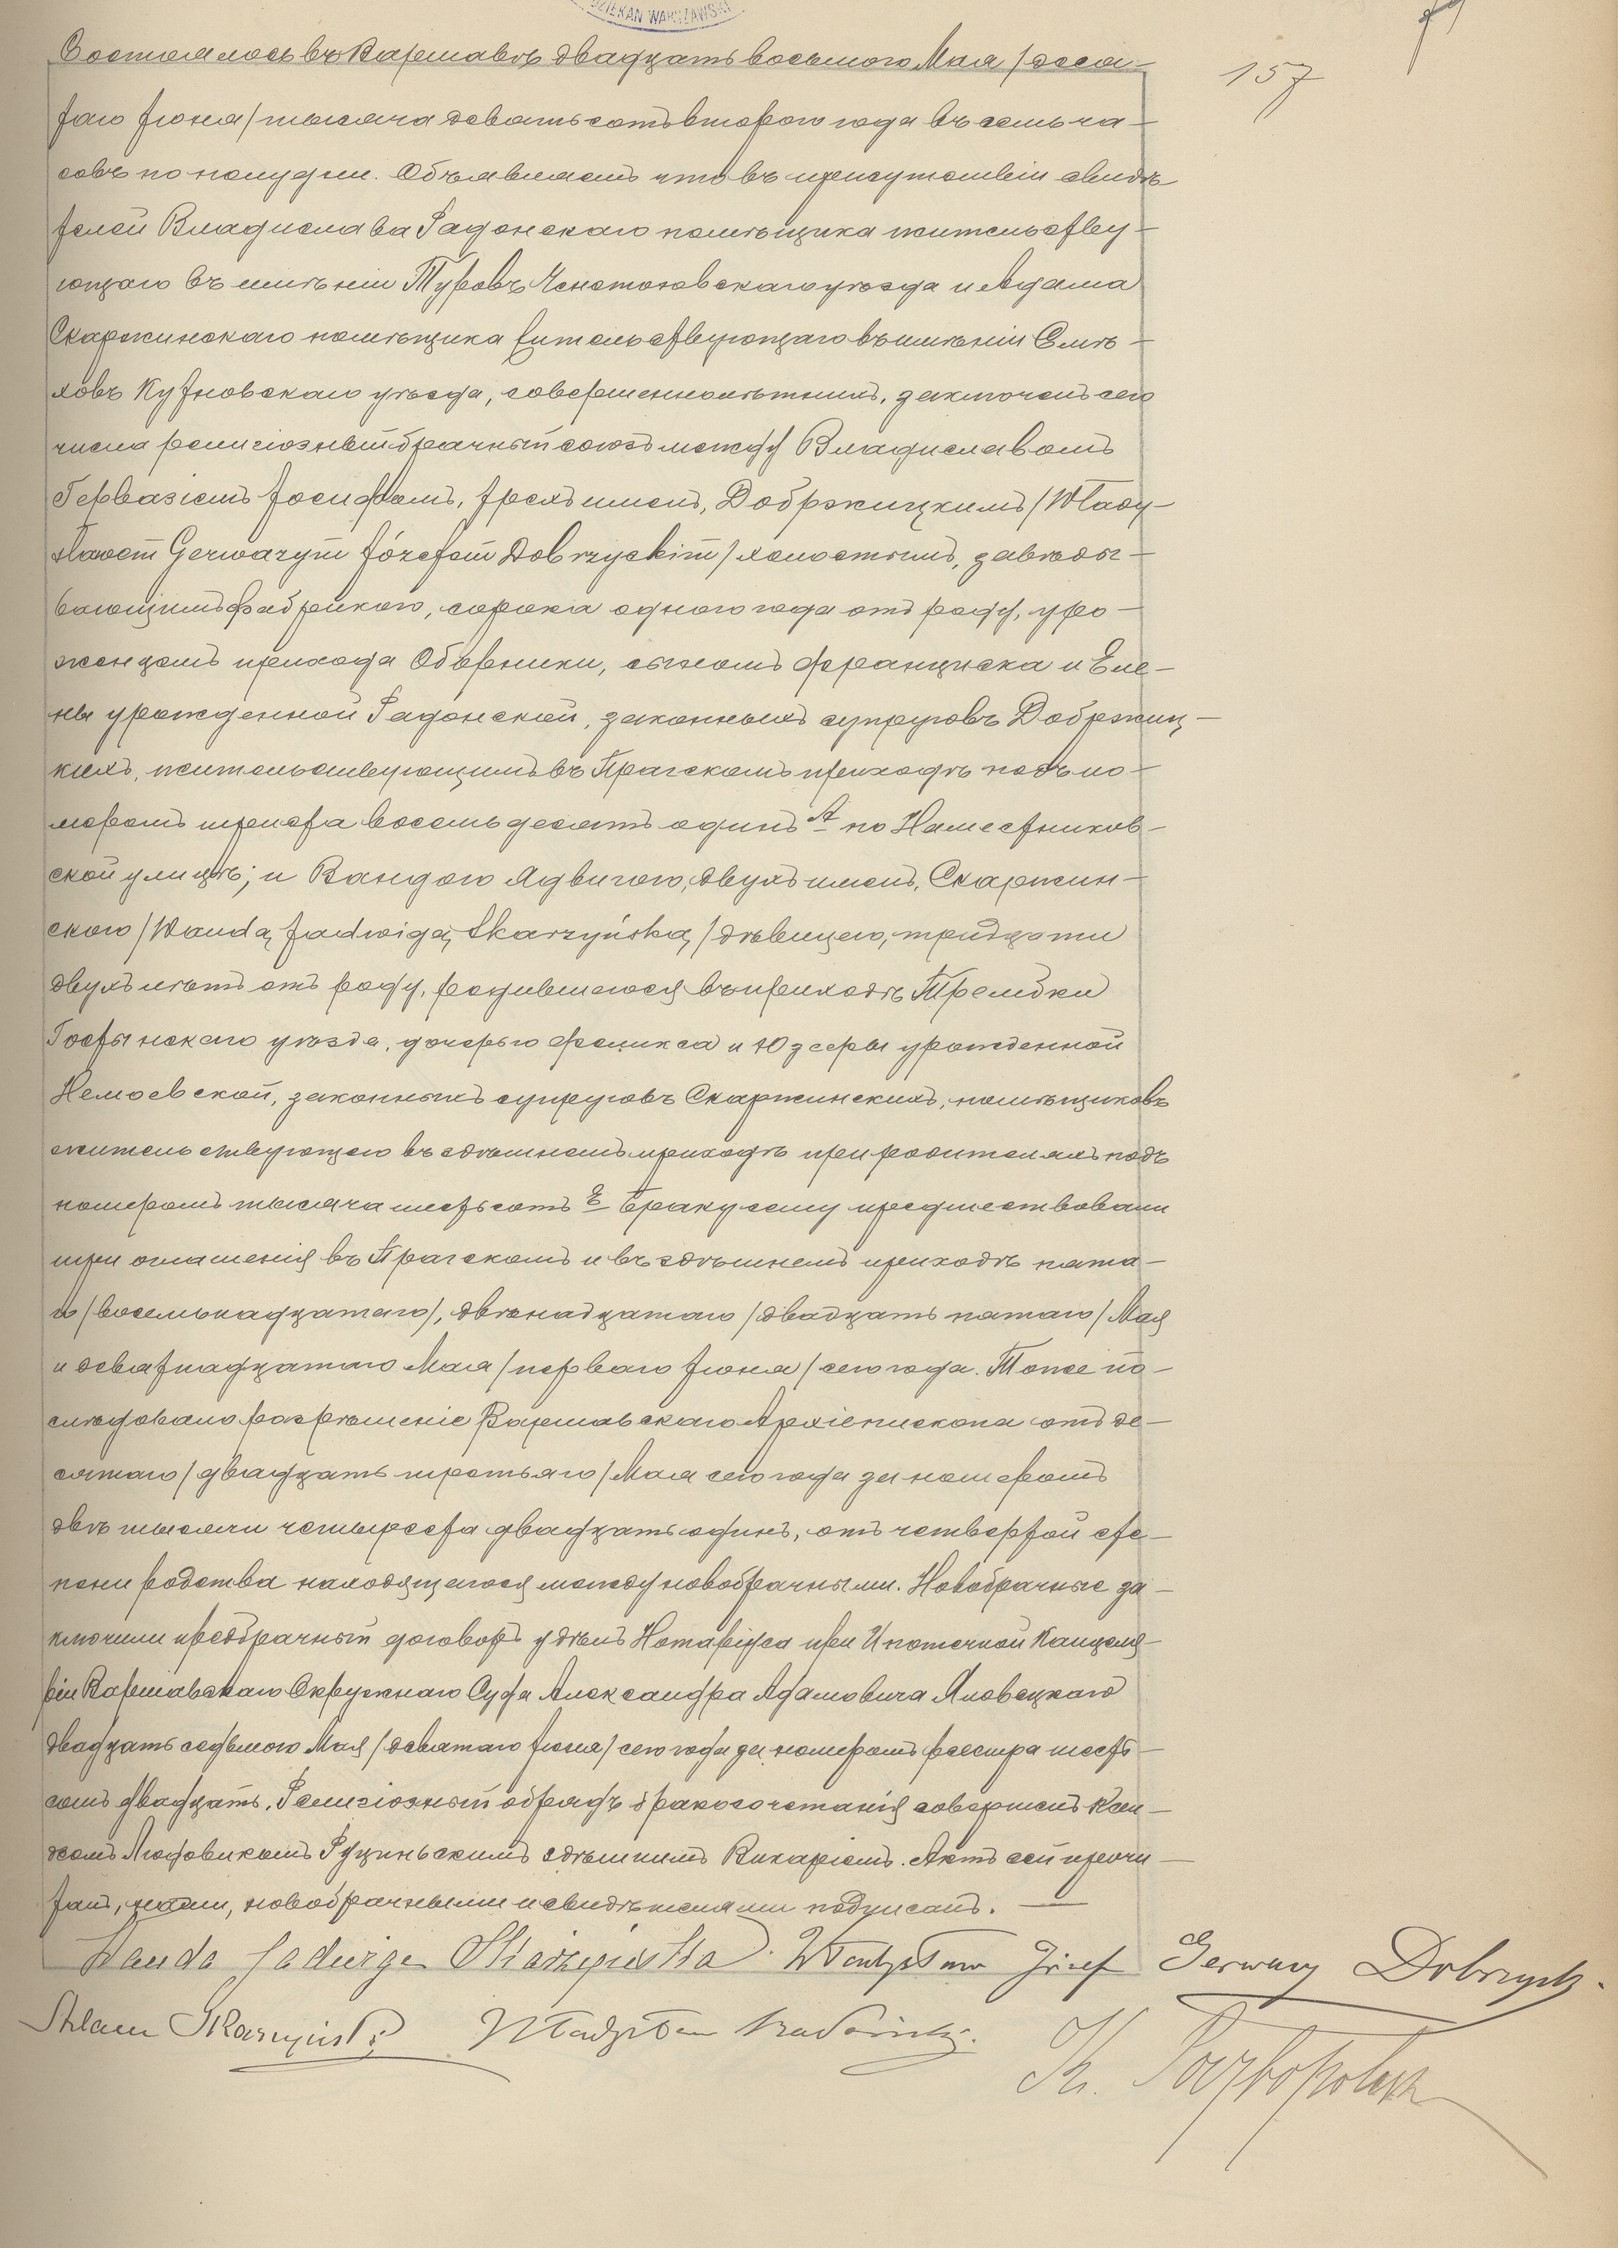 DZIEKAN WARSZAWSKI
157
Состоялось въ Варшавѣ двадцать восьмого Мая /деся-
таго Іюня/ тысяча девятьсотъ второго года въ семь ча-
совъ по полудни. Объявляемъ что въ присутствіи свидѣ
телей Владислава Радонскаго помѣщика жительству-
ющаго въ имѣніи Туровъ Ченстоховскаго уѣзда и Адама
Скаржинскаго помѣщика жительствующаго въ имѣніи
Кутновскаго уѣзда, совершеннолѣтнихъ, заключенъ сего
числа религіозный брачный союзъ между Владиславомъ
Гервазіемъ Іосифомъ, трехъ именъ, Добржицкимъ /Włady-
sławem Gerwazym Józefem Dobrzyckim/ холостымъ, завѣды-
вающимъ фабрикою, сорока одного года отъ роду, уро-
женцемъ прихода Оборники, сыномъ Франциска и Еле-
ны урожденной Радонской, законныхъ супруговъ Добржиц-
кихъ, жительствующимъ въ Прагскомъ приходѣ подъ но-
меромъ триста восемьдесятъ одинъ А по Намѣстников-
ской улицѣ; и Вандою Ядвигою, двухъ именъ, Скаржин-
скою /Wandą Jadwigą Skarzyńską/ дѣвицею, тридцати
двухъ лѣтъ отъ роду, родившеюся въ приходѣ Трембки
Гостынскаго уѣзда, дочерью Феликса и Юзефы урожденной
Немоевской, законныхъ супруговъ Скаржинскихъ, помѣщиковъ
жительствующею въ здѣшнемъ приходѣ при родителяхъ подъ
номеромъ тысяча шестьсотъ Браку сему предшествовали
три оглашенія въ Прагскомъ и въ здѣшнемъ приходѣ пята-
го /восемьнадцатаго/, двѣнадцатаго /двадцать пятаго/ Мая
и девятнадцатаго Мая /перваго Іюня/ сего года. Тоже по-
слѣдовало разрѣшеніе Варшавскаго Архіепископа отъ де-
сятаго /двадцать третьяго/ Мая сего года за номеромъ
двѣ тысячи четыреста двадцать одинъ, отъ четвертой сте-
пени родства находящагося между новобрачными. Новобрачные за-
ключили предбрачный договоръ у Нотаріуса при Ипотечной Канцеля-
ріи Варшавскаго Окружнаго Суда Александра Адамовича Яловецкаго
двадцать седьмого Мая /девятаго Іюня/ сего года за номеромъ реестра шесть-
сотъ двадцать. Религіозный обрядъ бракосочетанія совершенъ Ксен-
дзомъ Людовикомъ Руциньскимъ здѣшнимъ Викаріемъ. Актъ сей прочи-
танъ, нами, новобрачными и свидѣтелями подписанъ.
Wanda Jadwiga Skarżyńska. Władysław Józef Gerwazy Dobrzycki.
Adam Skarzyński Władysław Radoński.